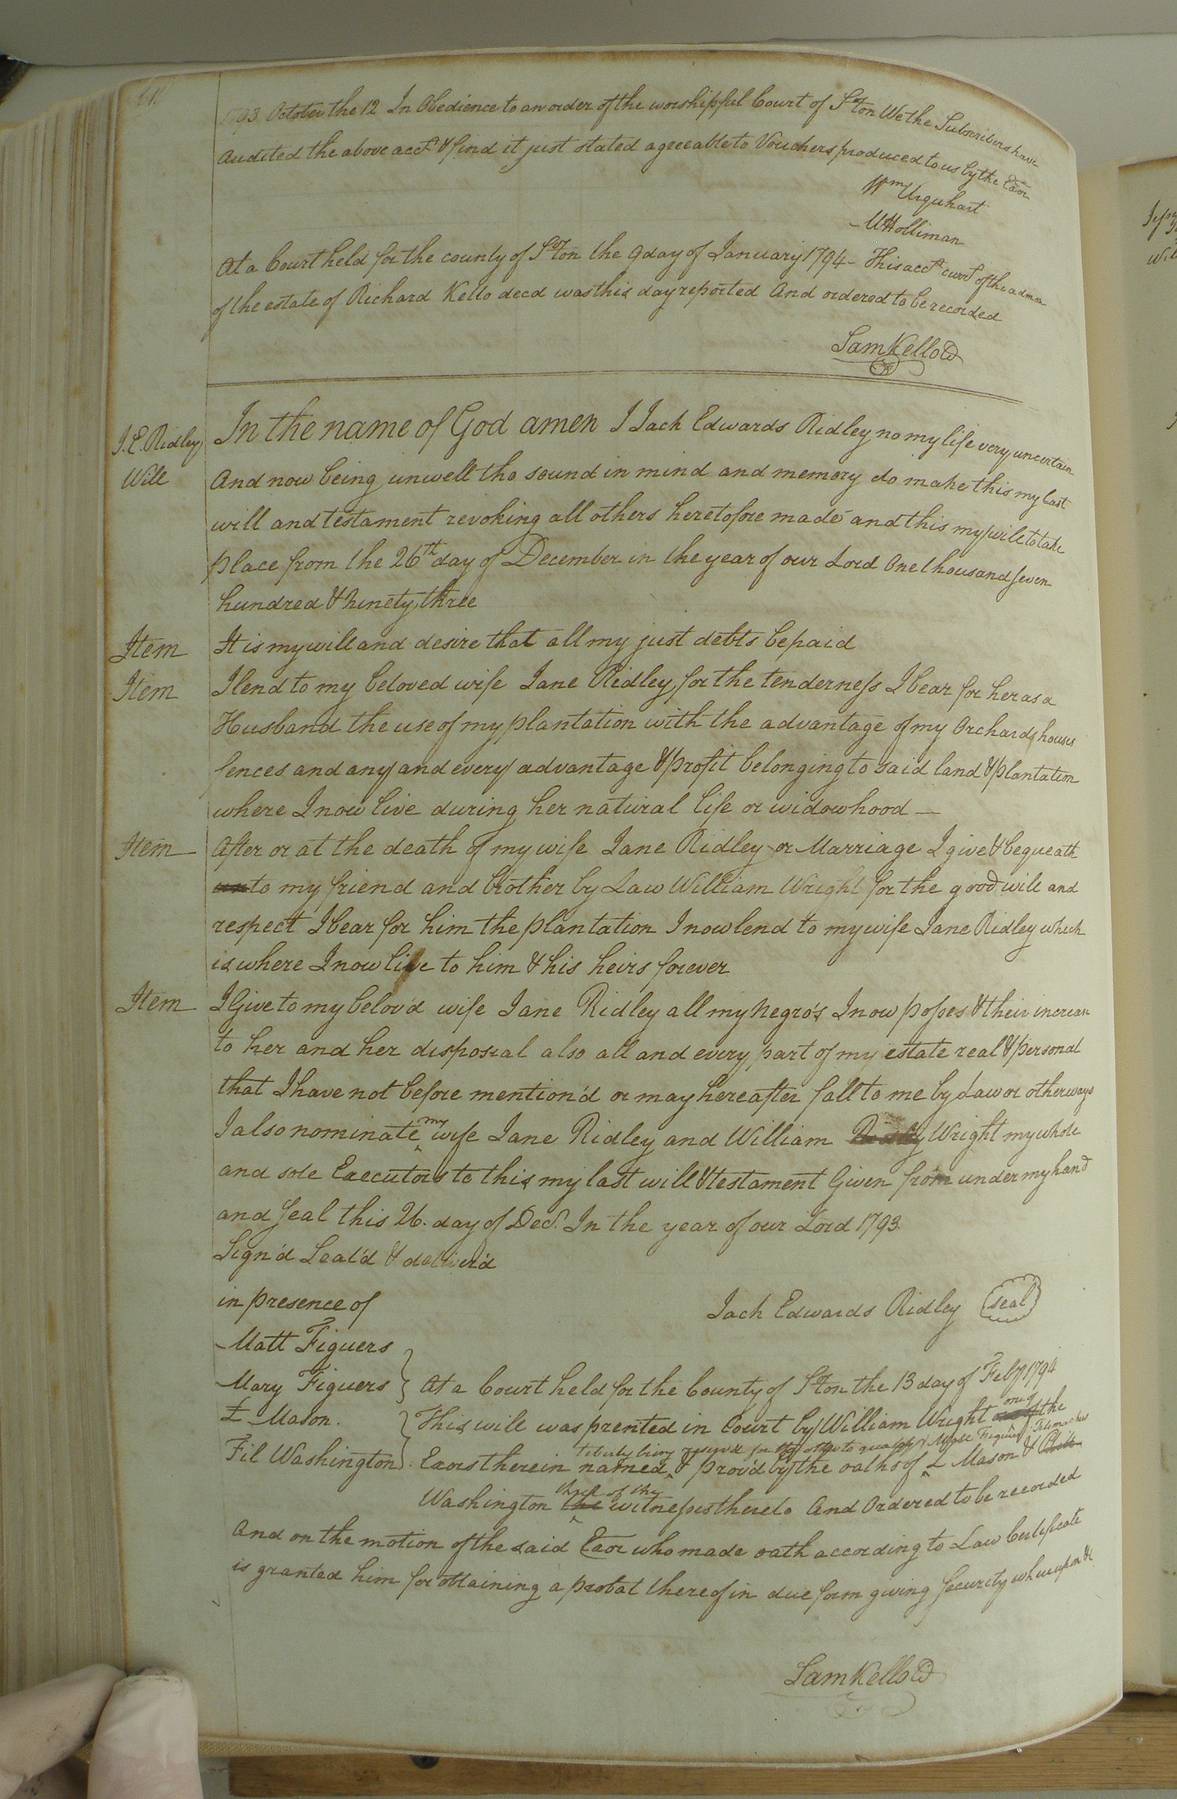 1793 October the 12 In Obedience to an order of the worshippful Court of S°ton We the Subscribers have
Audited the above acct. & find it just stated agreeable to Vouchers produced to us by the Exor
Wm Urquhart
M Holliman
At a Court held for the county of S°ton the 9 day of January 1794 - This acct. currt. of the admn
of the estate of Richard Kello decd was this day reported And ordered to be recorded
Sam Kello CC
J. E. Ridley
Will
In the name of God amen I Jack Edwards Ridley no my life very uncertain
And now being unwell tho sound in mind and memory do make this my last
will and testament revoking all others heretofore made and this my will to take
place from the 26th day of December in the year of our Lord One thousand seven
hundred & ninety, three
Item It is my will and desire that all my just debts be paid
Item I lend to my beloved wife Jane Ridley for the tenderness I bear for her as a
Husband the use of my plantation with the advantage of my Orchards houses
fences and any and every advantage & profit belonging to said land & plantation
where I now live during her natural life or widowhood —
Item After or at the death of my wife Jane Ridley or Marriage I give & bequeath
to my friend and brother by Law William Wright for the good will and
respect I bear for him the plantation I now lend to my wife Jane Ridley which
is where I now live to him & his heirs forever
Item I Give to my belov'd wife Jane Ridley all my Negro's I now posses & their increas
to her and her disposial also all and every part of my estate real & personal
that I have not before mention'd or may hereafter fall to me by Law or otherways
I also nominate my wife Jane Ridley and William Wright my whole
and sole Executors to this my last will & testament Given from under my hand
and Seal this 26. day of Decr. In the year of our Lord 1793
Sign'd Seal'd & deliver'd
in presence of
Jack Edwards Ridley seal
Matt Figuers
Mary Figuers
L Mason.
Fil Washington
At a Court held for the County of S°ton the 13 day of Feby 1794
This will was prented in Court by William Wright one of the
Exors therein named liberty being reserv'd for the other to & prov'd by the oaths of Matt Figures L Mason &
Washington three of the witnesses thereto And Ordered to be recorded
And on the motion of the said Exor who made oath according to Law Certificate
is granted him for obtaining a probat thereof in due form giving security whereupon &c
Sam Kello CC